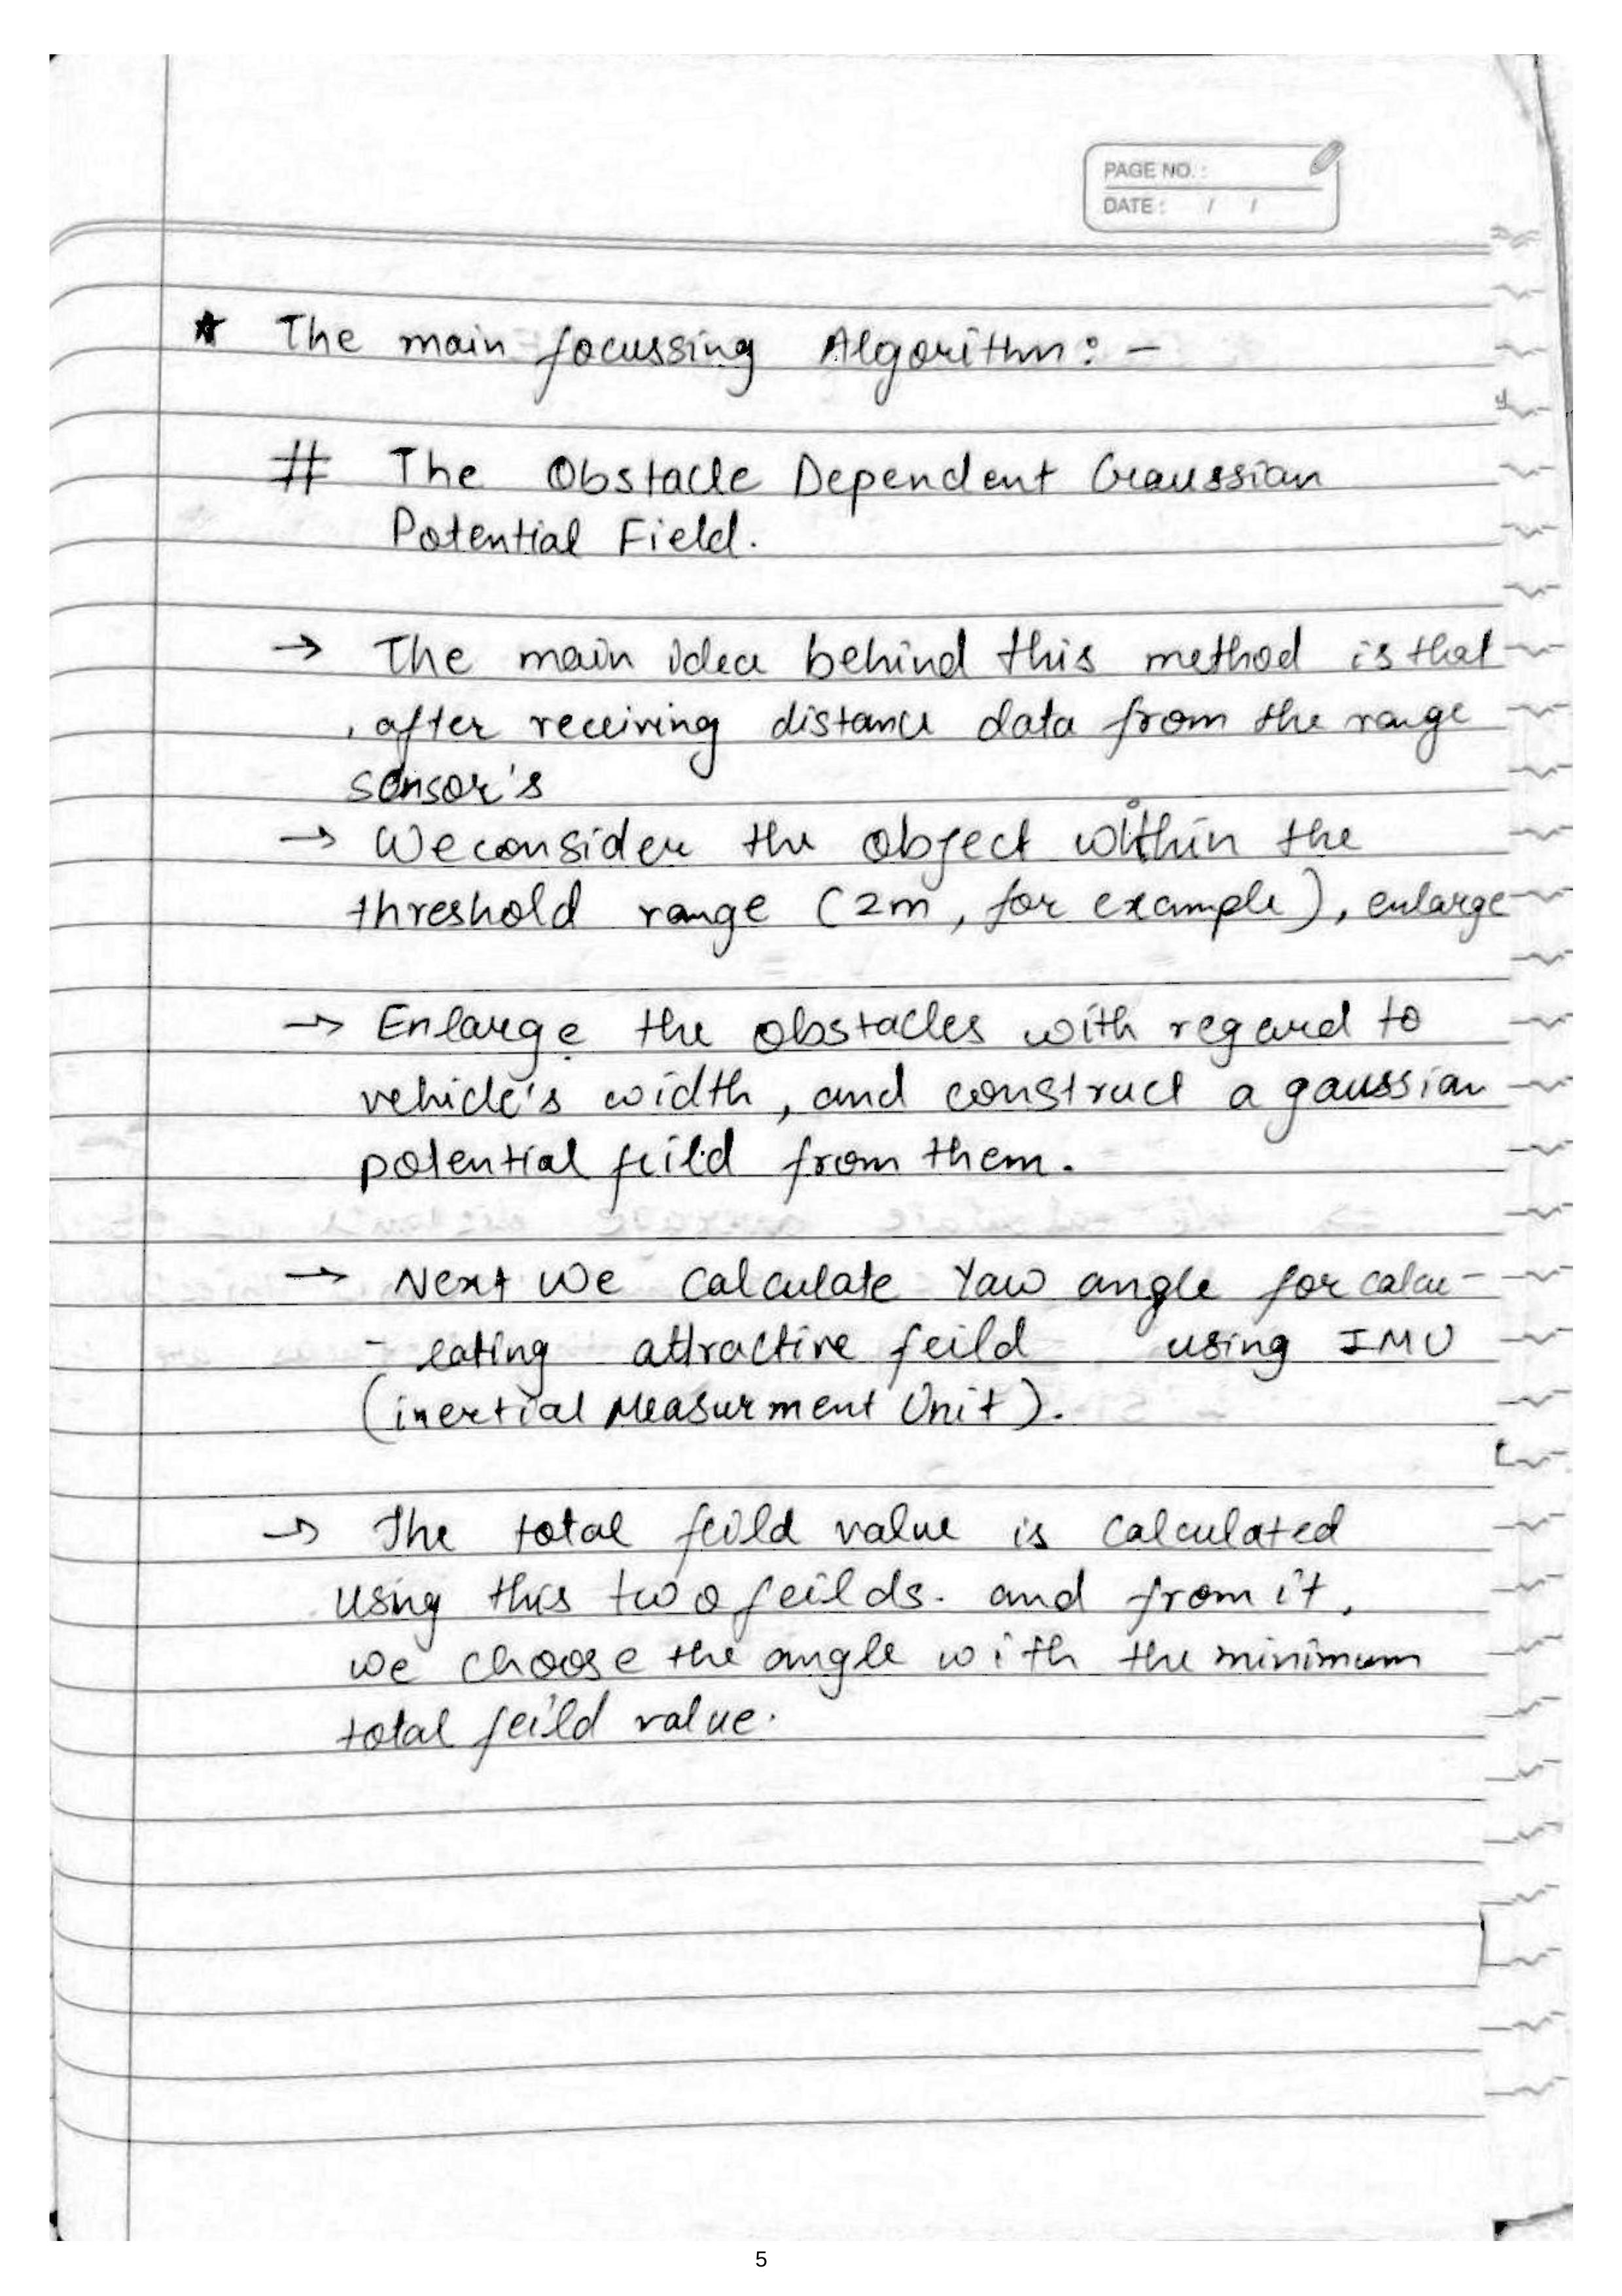 PAGE NO. :
DATE : / /
★ The main focussing Algorithm: -
# The Obstacle Dependent Gaussian
Potential Field.
→ The main idea behind this method is that
, after receiving distance data from the range
sensor's
→ We consider the object within the
threshold range (2m, for example), enlarge
→ Enlarge the obstacles with regard to
vehicle's width, and construct a gaussian
potential feild from them.
→ Next We calculate Yaw angle for calcu-
- lating attractive feild using IMU
(inertial Measurment Unit).
→ The total feild value is calculated
using this two feilds. and from it,
we choose the angle with the minimum
total feild value.
5